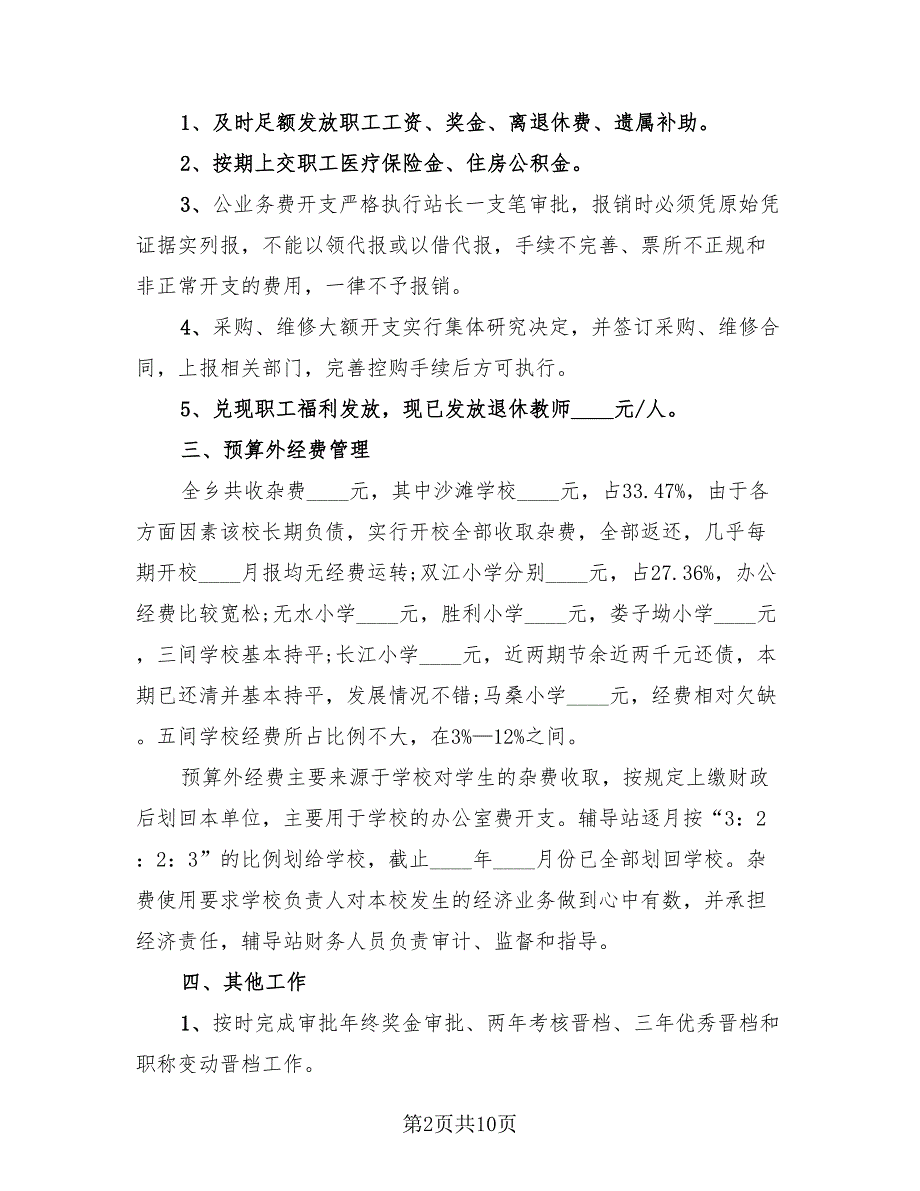 1、及时足额发放职工工资、奖金、离退休费、遗属补助。
2、按期上交职工医疗保险金、住房公积金。
3、公业务费开支严格执行站长一支笔审批，报销时必须凭原始凭
证据实列报，不能以领代报或以借代报，手续不完善、票所不正规和
非正常开支的费用，一律不予报销。
4、采购、维修大额开支实行集体研究决定，并签订采购、维修合
同，上报相关部门，完善控购手续后方可执行。
5、兑现职工福利发放，现已发放退休教师____元/人。
三、预算外经费管理
全乡共收杂费____元，其中沙滩学校____元，占33.47%，由于各
方面因素该校长期负债，实行开校全部收取杂费，全部返还，几乎每
期开校____月报均无经费运转;双江小学分别____元，占27.36%，办公
经费比较宽松;无水小学____元，胜利小学____元，娄子坳小学____元
，三间学校基本持平;长江小学____元，近两期节余近两千元还债，本
期已还清并基本持平，发展情况不错;马桑小学____元，经费相对欠缺
。五间学校经费所占比例不大，在3%—12%之间。
预算外经费主要来源于学校对学生的杂费收取，按规定上缴财政
后划回本单位，主要用于学校的办公室费开支。辅导站逐月按“3：2
：2：3”的比例划给学校，截止____年____月份已全部划回学校。杂
费使用要求学校负责人对本校发生的经济业务做到心中有数，并承担
经济责任，辅导站财务人员负责审计、监督和指导。
四、其他工作
1、按时完成审批年终奖金审批、两年考核晋档、三年优秀晋档和
职称变动晋档工作。
第2页共10页